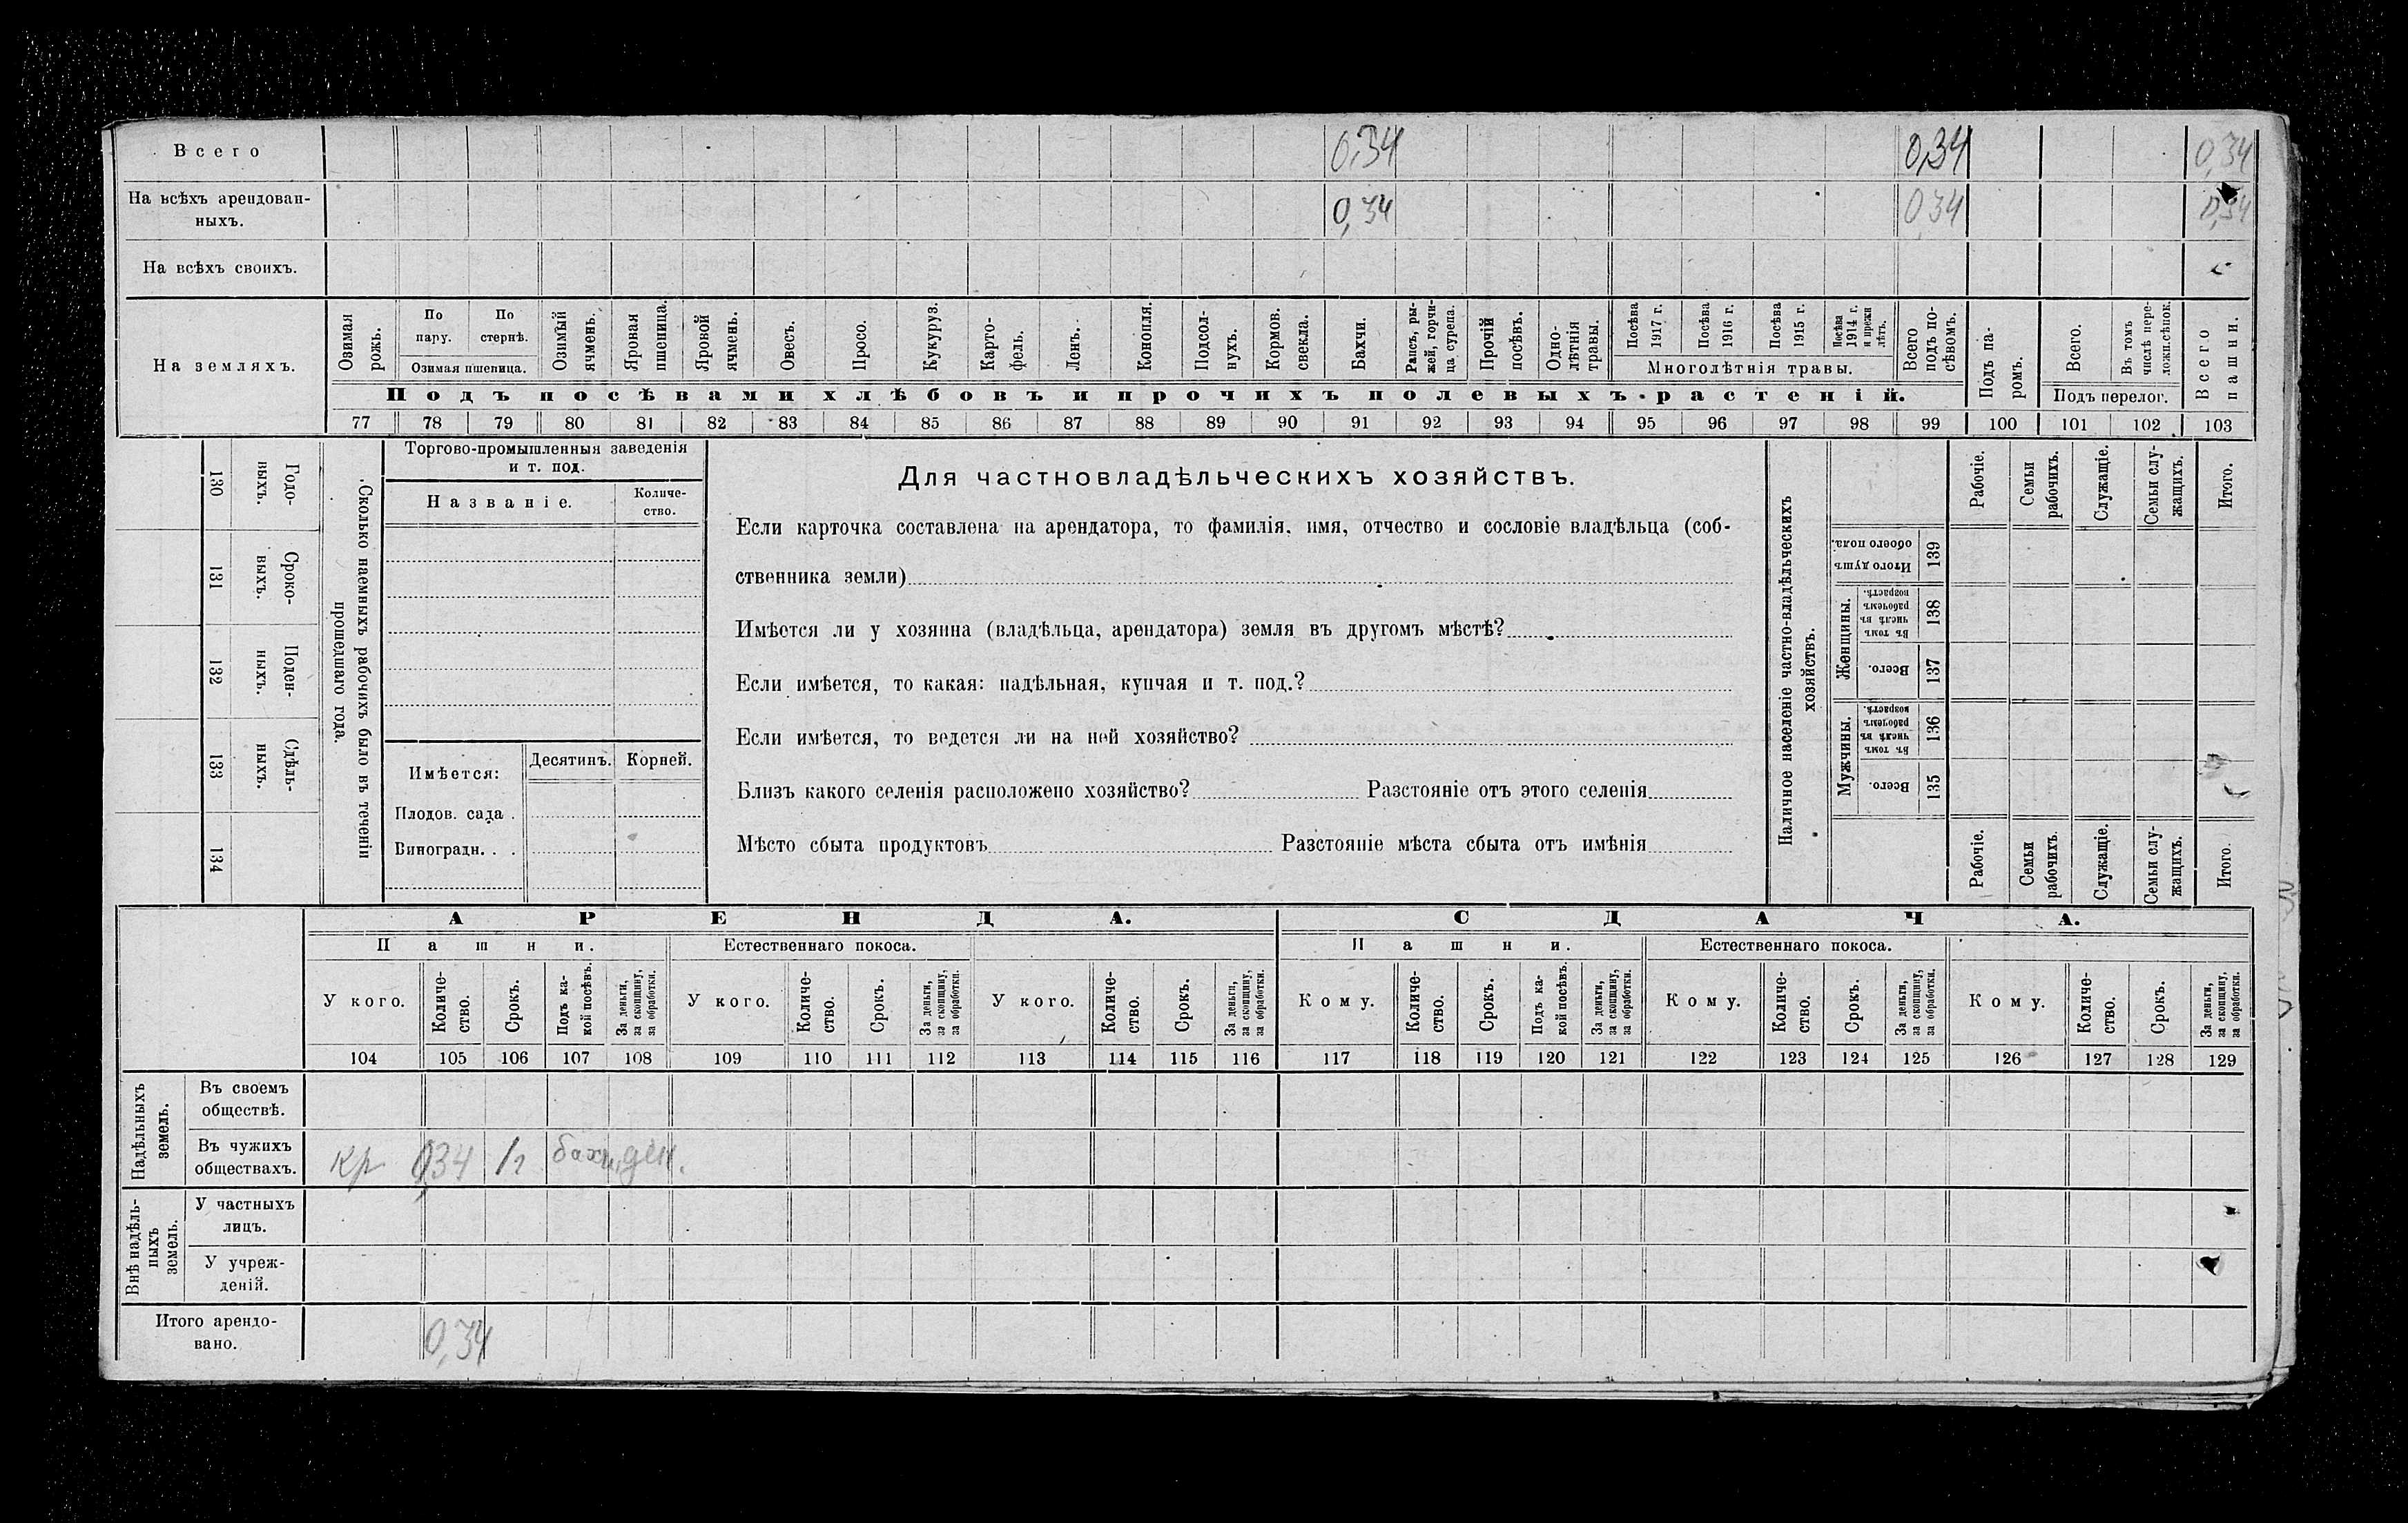 Всего 0,34 0,34 0,34
На всѣхъ арендован-
ныхъ. 0,34 0,34 0,34
На всѣхъ своихъ.
На земляхъ.
Озимая рожь.
По пару.
По стернѣ.
Озимая пшеница.
Озимый ячмень.
Яровая пшеница.
Яровой ячмень.
Овесъ.
Просо.
Кукуруз.
Карто-
фель.
Ленъ.
Конопля.
Подсол-
нухъ.
Кормов. свекла.
Бахчи.
Рапсъ, ры-
жей, горчи-
ца сурепа.
Прочій посѣвъ.
Одно-
лѣтнія травы.
Посѣва 1917 г.
Посѣва 1916 г.
Посѣва 1915 г.
Посѣва 1914 г. и прежн лѣтъ.
Многолѣтнія травы.
Всего подъ по-
сѣвомъ.
Подъ посѣвами хлѣбовъ и прочихъ полевыхъ растеній.
Подъ па-
ромъ.
Всего.
Въ томъ числѣ пере-
ложн.сѣнок.
Подъ перелог.
Всего пашни.
77 78 79 80 81 82 83 84 85 86 87 88 89 90 91 92 93 94 95 96 97 98 99 100 101 102 103
Годо-
выхъ.
130
Сроко-
выхъ.
131
Поден-
ныхъ.
132
Сдѣль-
ныхъ.
133
134
Сколько наемныхъ рабочихъ было въ теченіи
прошедшаго года.
Торгово-промышленныя заведенія
и т. под.
Названіе.
Количе-
ство.
Имѣется:
Десятинъ.
Корней.
Плодов. сада .
Виноградн. . .
Для частновладѣльческихъ хозяйствъ.
Если карточка составлена на арендатора, то фамилія, имя, отчество и сословіе владѣльца (соб-
ственника земли)
Имѣется ли у хозяина (владѣльца, арендатора) земля въ другомъ мѣстѣ?
Если имѣется, то какая: надѣльная, купчая и т. под.?
Если имѣется, то ведется ли на ней хозяйство?
Близъ какого селенія расположено хозяйство? Разстояніе отъ этого селенія
Мѣсто сбыта продуктовъ Разстояніе мѣста сбыта отъ имѣнія
Наличное населеніе частно-владѣльческихъ
хозяйствъ.
Рабочіе.
Семьи рабочихъ.
Служащіе.
Семьи слу-
жащихъ.
Итого.
Итого душъ обоего пола.
139
Женщины.
Въ томъ числѣ въ рабочемъ возрастѣ.
138
Всего.
137
Мужчины.
Въ томъ числѣ въ рабочемъ возрастѣ.
136
Всего.
135
Рабочіе.
Семьи рабочихъ.
Служащіе.
Семьи слу-
жащихъ.
Итого.
АРЕНДА. СДАЧА.
Пашни. Естественнаго покоса. Пашни. Естественнаго покоса.
У кого.
Количе-
ство.
Срокъ.
Подъ ка-
кой посѣвъ.
За деньги, за скопщину, за обработки.
У кого.
Количе-
ство.
Срокъ.
За деньги, за скопщину, за обработки.
У кого.
Количе-
ство.
Срокъ.
За деньги, за скопщину, за обработки.
Кому.
Количе-
ство.
Срокъ.
Подъ ка-
кой посѣвъ.
За деньги, за скопщину, за обработки.
Кому.
Количе-
ство.
Срокъ.
За деньги, за скопщину, за обработки.
Кому.
Количе-
ство.
Срокъ.
За деньги, за скопщину, за обработки.
104 105 106 107 108 109 110 111 112 113 114 115 116 117 118 119 120 121 122 123 124 125 126 127 128 129
Надѣльныхъ земель.
Въ своемъ
обществѣ.
Въ чужихъ
обществахъ. кр 0,34 1г бахч. ден.
Внѣ надѣль-
ныхъ земель.
У частныхъ
лицъ.
У учреж-
деній.
Итого арендо-
вано. 0,34